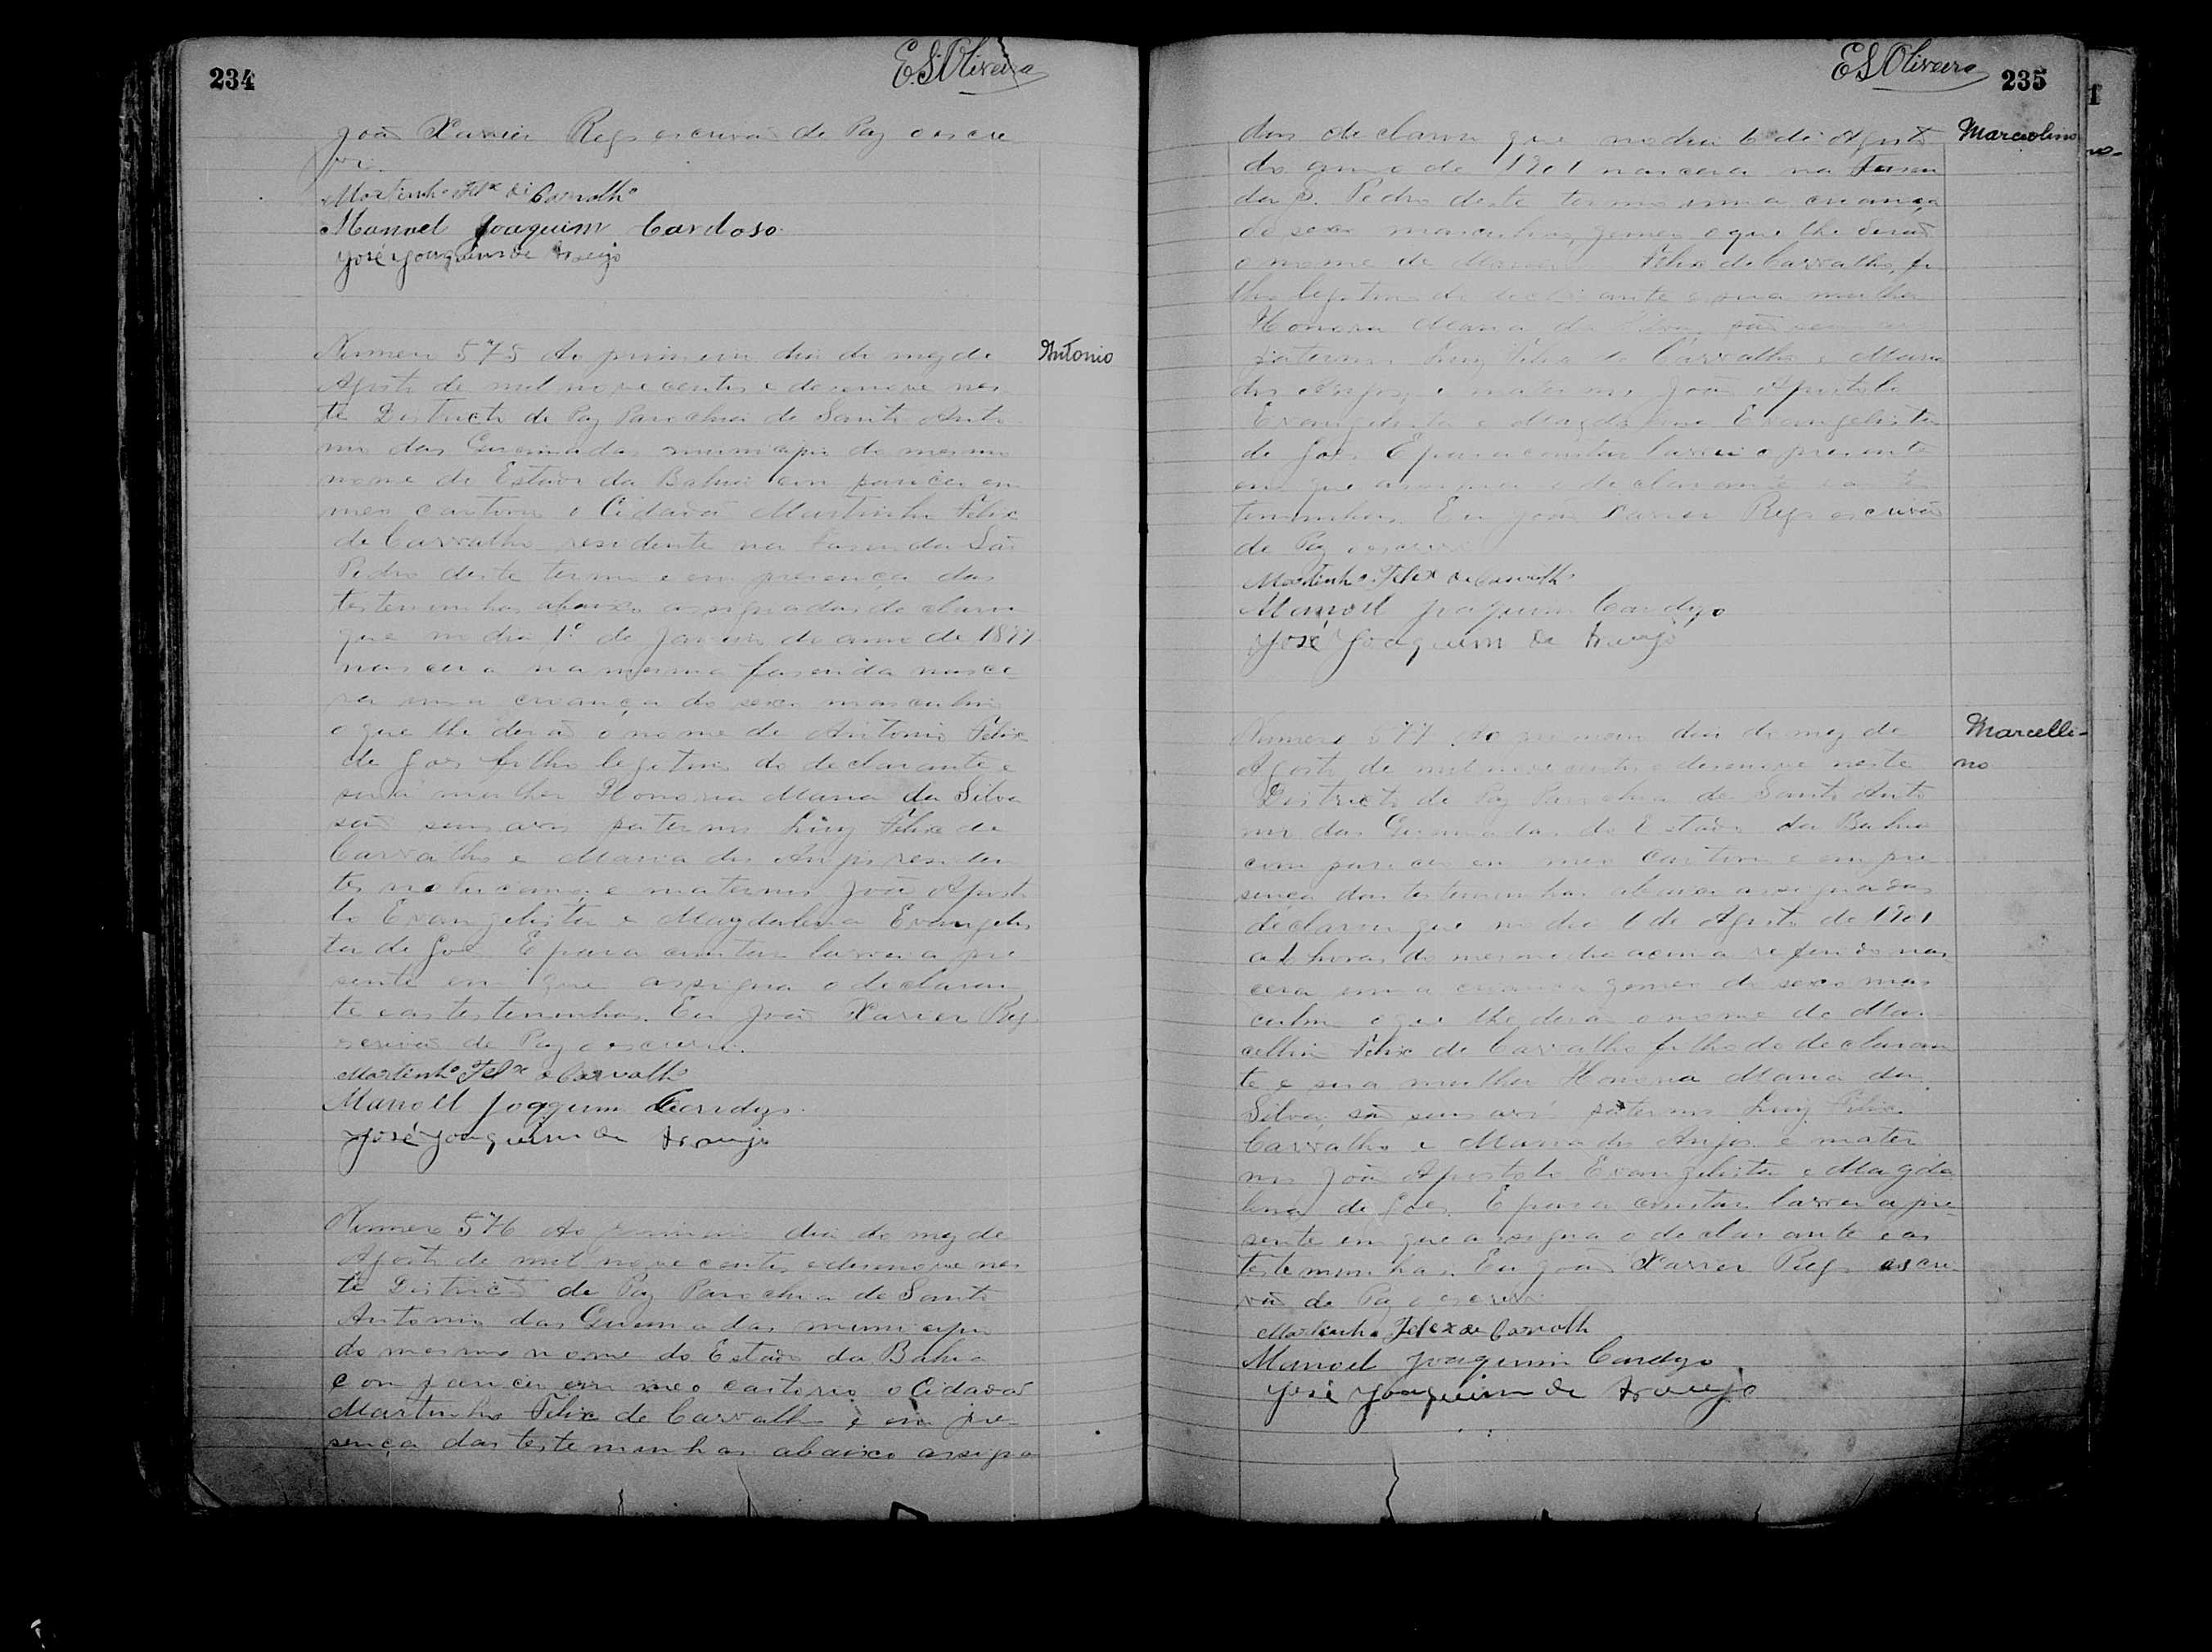 234
E.S.Oliveira
João Xavier Rego escrivão de Paz o escre
vi.
Martinho Felx de Carvalho
Manoel Joaquim Cardoso
José Joaquim de Araujo
Antonio
Numero 575 Ao primeiro dia do mez de
Agosto de mil nove centos e desenove nes
te Districto de Paz Parochia de Santo Anto
nio das Queimadas municipio do mesmo
nome do Estado da Bahia com pareceu em
meo cartorio o Cidadão Martinho Felix
de Carvalho residente na Fasenda São
Pedro deste termo e em presença das
testeminhas abaixo assignadas declarou
que no dia 1º de Janeiro do anno de 1899
nascera na mesma fasenda nasce
ra uma criança do sexo masculino
o que lhe derão o nome de Antonio Felix
de Goes filho legitimo do declarante e
sua mulher Honoria Maria da Silva
são seus avos paternos Luiz Felix de
Carvalho e Maria dos Anjos residen
tes e maternos João Aposto
lo Evangelista e Magdalena Evangelis
ta de Goes E para constar lavrei a pre
sente em que assigna o declaran
te e as testeminhas. Eu João Xavier Rego
escrivão de Paz o escrevi.
Martinho Felx de Carvalho
Manoel Joaquim Cardozo
José Joaquim de Araujo
Numero 576 Ao primeiro dia do mez de
Agosto de mil nove centos e desenove nes
te Districto de Paz Parochia de Santo
Antonio das Queimadas municipio
do mesmo nome do Estado da Bahia
com pareceu em meo cartorio o Cidadão
Martinho Felix de Carvalho e em pre
sença das testeminhas abaixo assigna
E S Oliveira
235
Marcolino
das declarou que no dia 6 de Agosto
do anno de 1901 nascera na Fasen
da S. Pedro deste termo uma criança
do sexo masculino, gemeo o que lhe derão
o nome de Felix de Carvalho, fi
lho legitimo do declarante e sua mulher
Honoria Maria da Silva são seus avos
paternos Luiz Felix de Carvalho e Maria
dos Anjos, e maternos João Apostolo
Evangelista e Magdalena Evangelista
de Goes. E para constar lavrei o presente
em que assigna o declarante e as tes
teminhas. Eu João Xavier Rego escrivão
de Paz o escrevi
Martinho Felix de Carvalho
Manoel Joaquim Cardozo
José Joaquim de Araujo
Marcelli-
no
Numero 577 Ao primeiro dia do mez de
Agosto de mil nove centos e desenove neste
Districto de Paz Parochia de Santo Anto
nio das Queimadas do Estado da Bahia
com pareceu em meo Cartorio e em pre
sença das testeminhas abaixo assignadas
declarou que no dia 6 de Agosto de 1901
as horas do mesmo dia acima referido nas
cera uma criança gemeo do sexo mas
culino o que lhe derão o nome de Mar
cellino Felix de Carvalho filho do declaran
te e sua mulher Honoria Maria da
Silva, são seus avós paternos Luiz Felix
Carvalho e Maria dos Anjos e mater
nos João Apostolo Evangelista e Magda
lena de Goes. E para constar lavrei a pre-
sente em que assigna o declarante e as
testeminhas. Eu João Xavier Rego escri
vão de Paz o escrevi
Martinho Felix de Carvalho
Manoel Joaquim Cardozo
José Joaquim de Araujo